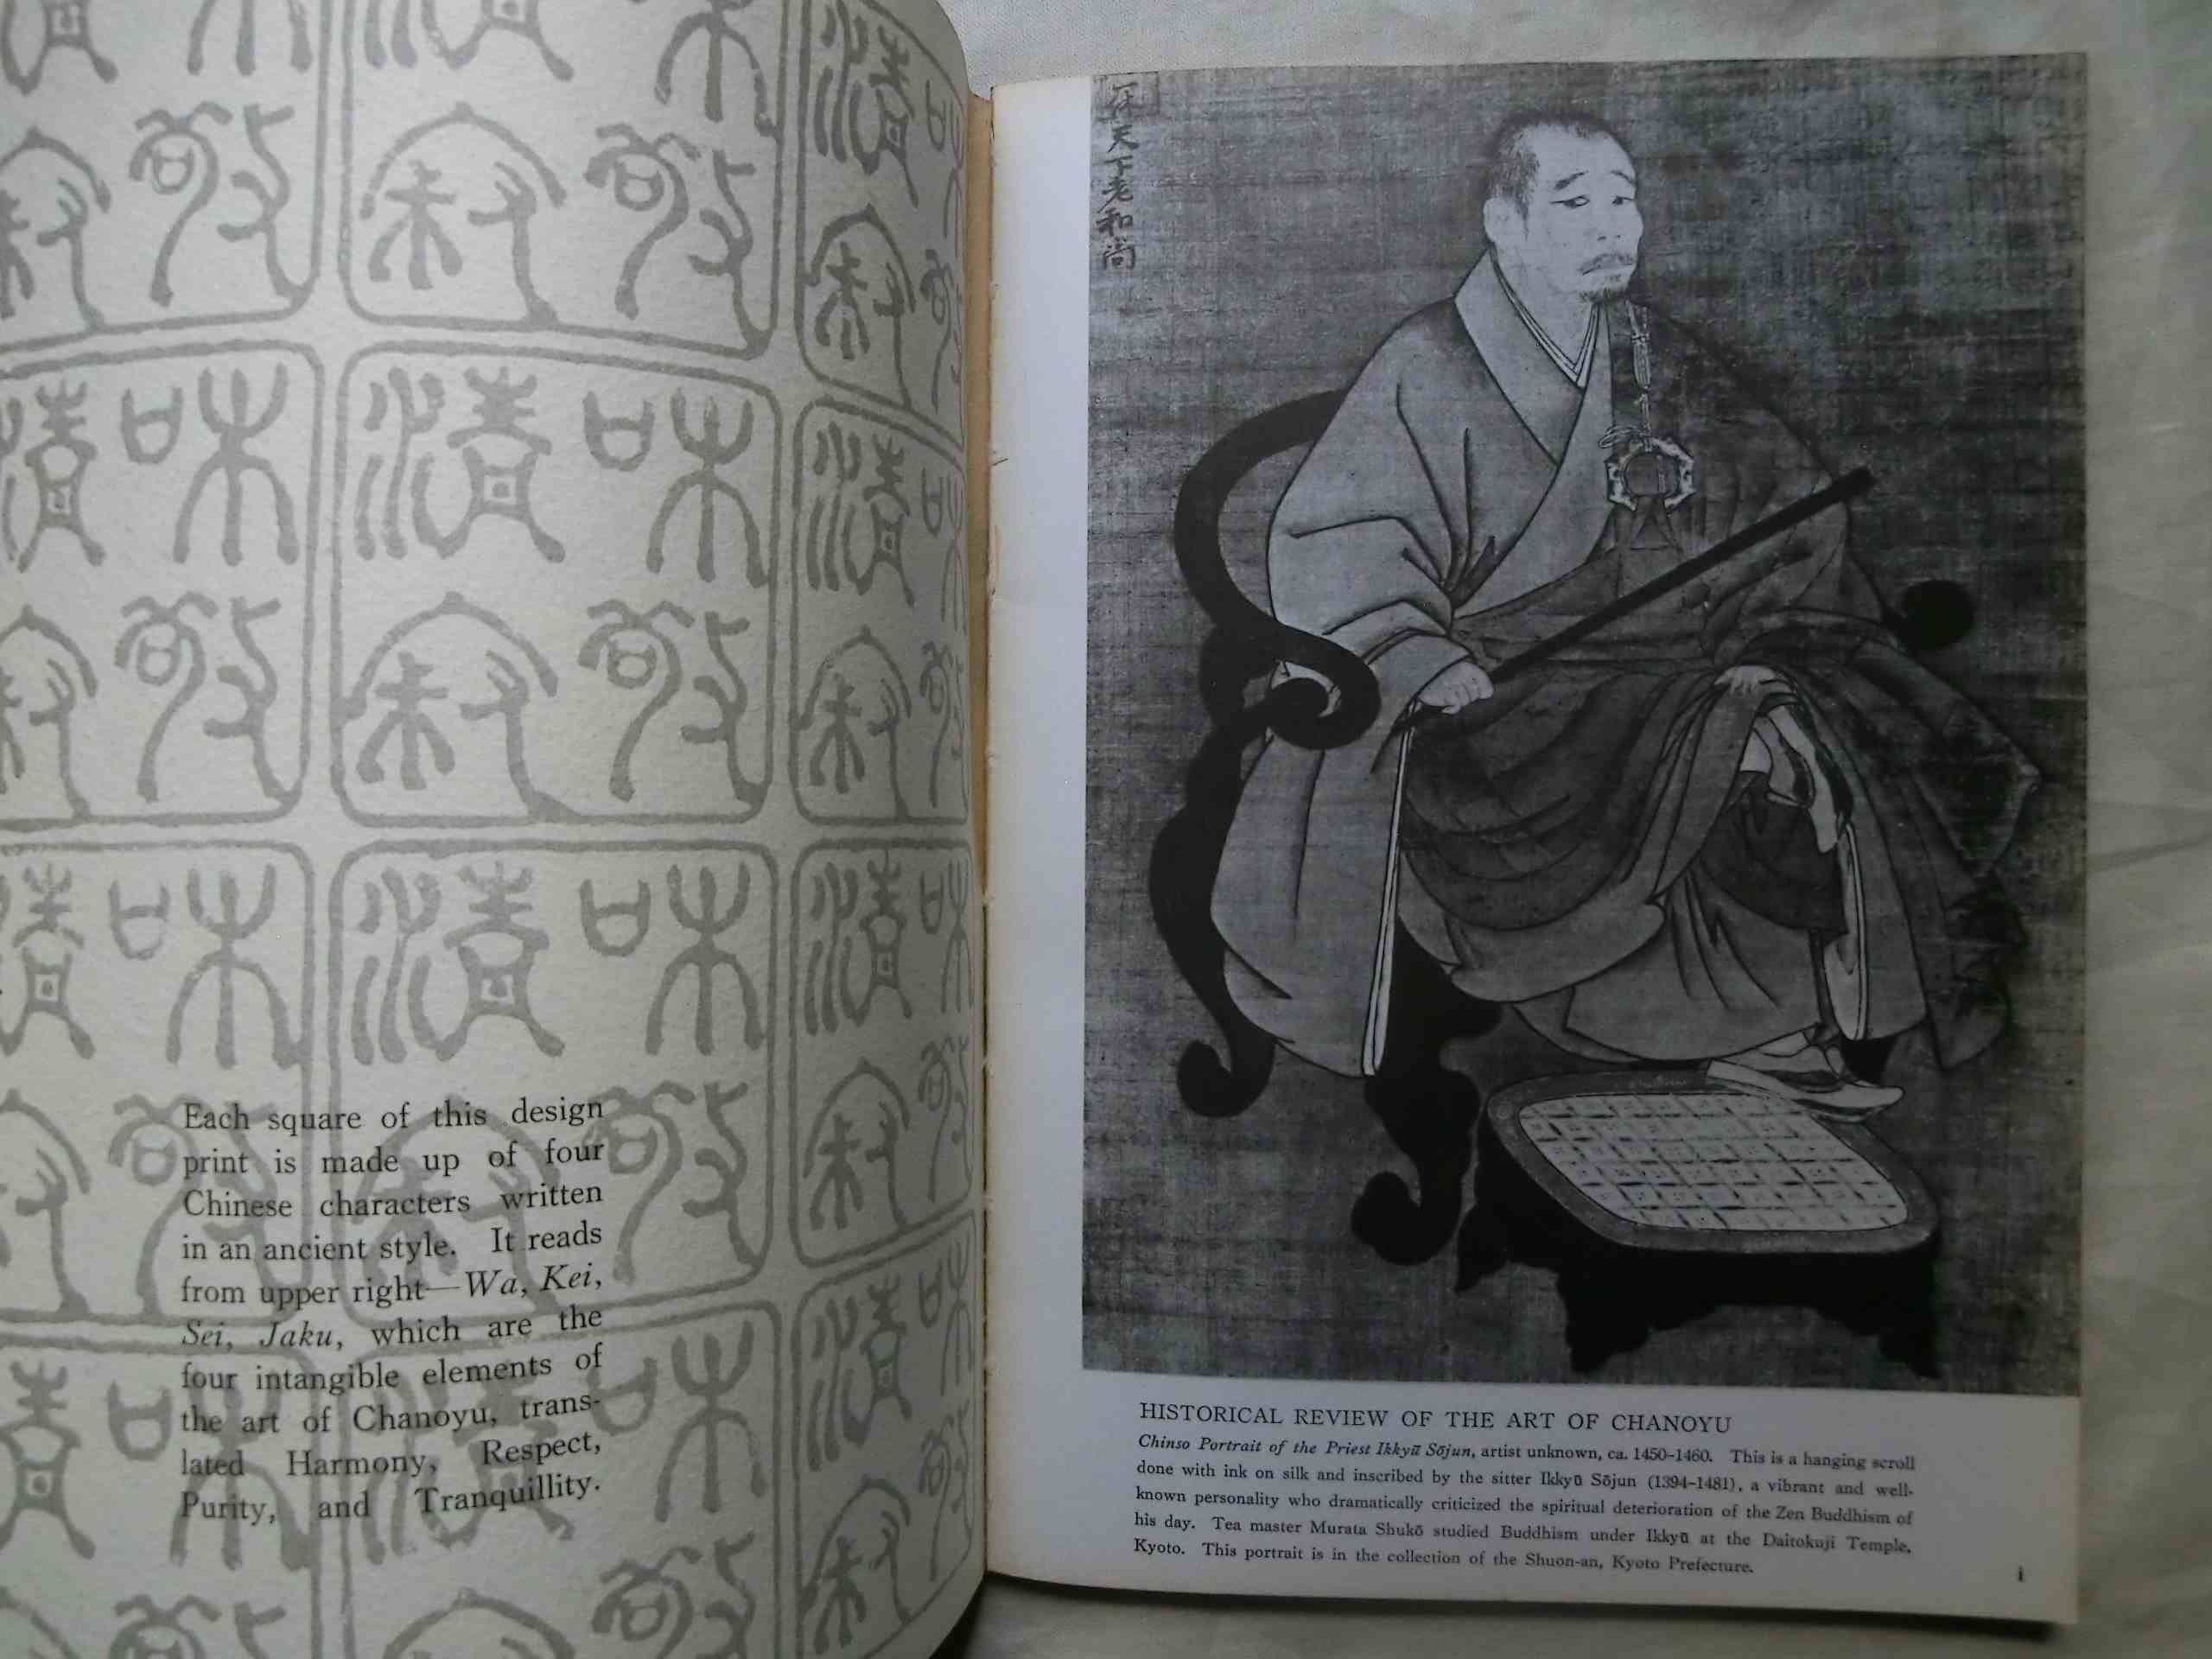 和敬
清寂
Each square of this design
print is made up of four
Chinese characters written
in an ancient style. It reads
from upper right—Wa, Kei,
Sei, Jaku, which are the
four intangible elements of
the art of Chanoyu, trans-
lated Harmony, Respect,
Purity, and Tranquillity.
一休天下老和尚
HISTORICAL REVIEW OF THE ART OF CHANOYU
Chinso Portrait of the Priest Ikkyū Sōjun, artist unknown, ca. 1450–1460. This is a hanging scroll
done with ink on silk and inscribed by the sitter Ikkyū Sōjun (1394–1481), a vibrant and well-
known personality who dramatically criticized the spiritual deterioration of the Zen Buddhism of
his day. Tea master Murata Shukō studied Buddhism under Ikkyū at the Daitokuji Temple,
Kyoto. This portrait is in the collection of the Shuon-an, Kyoto Prefecture.
i